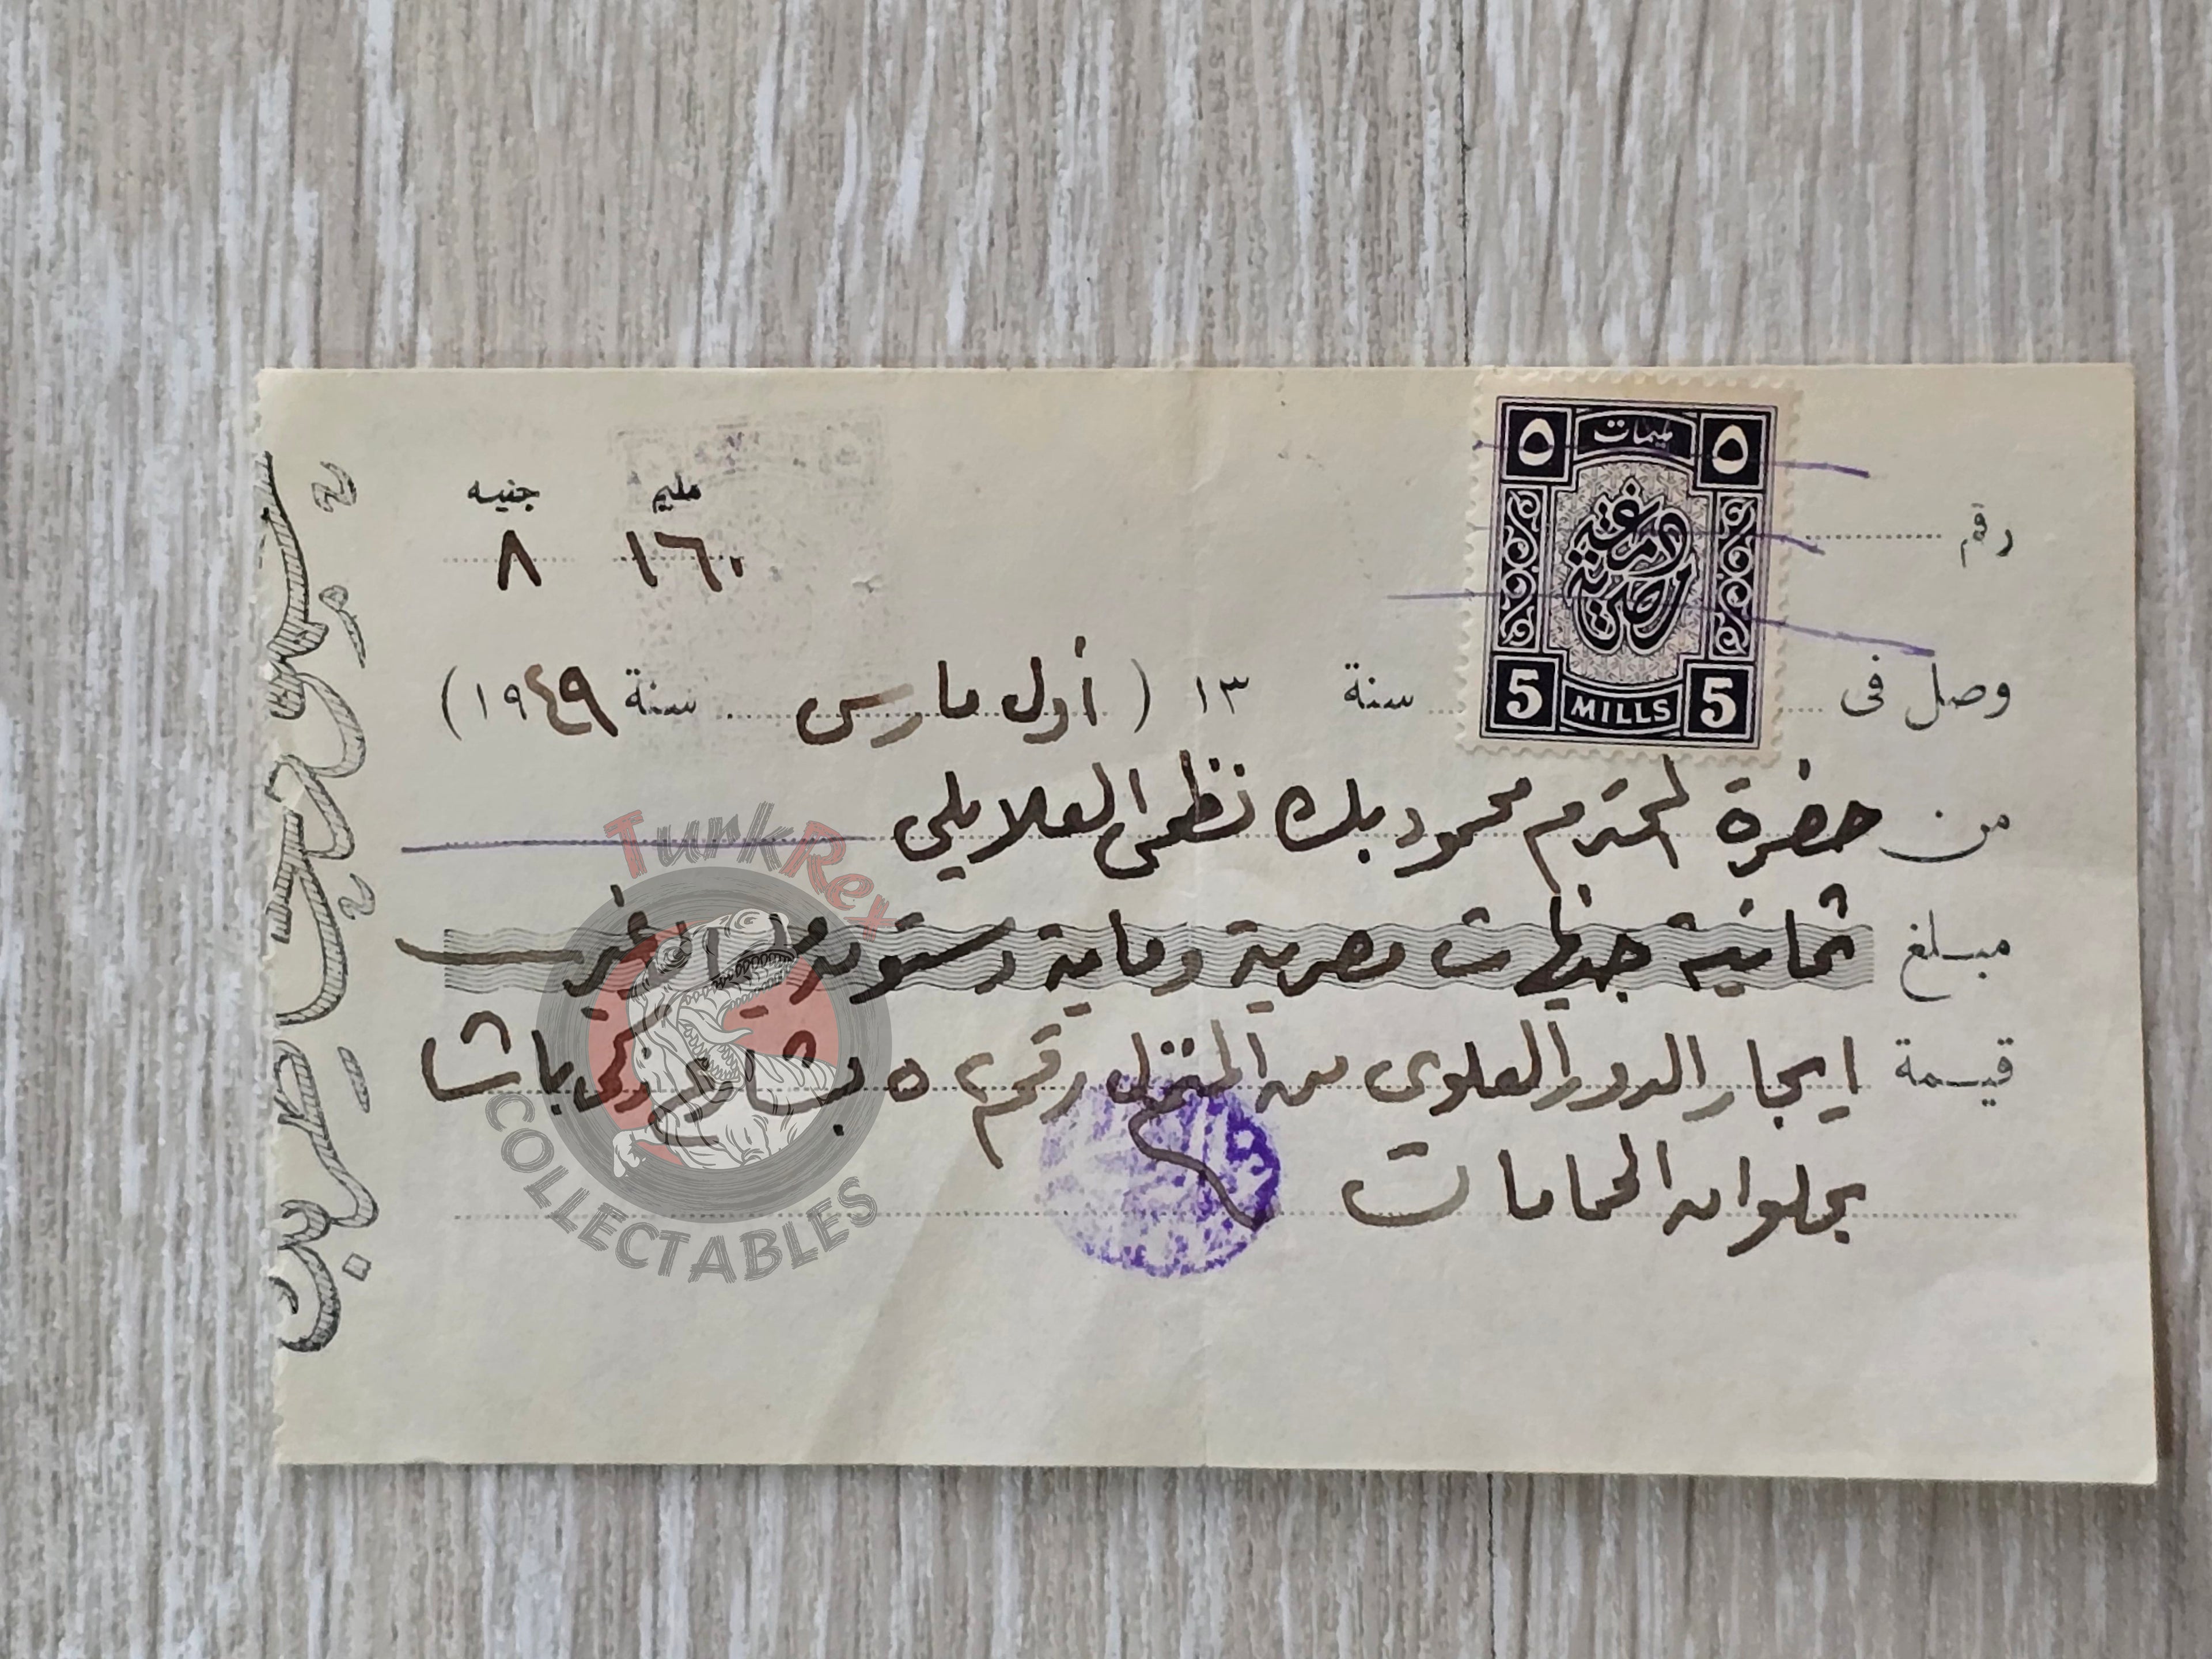 مليم جنيه
١٦٠ ٨
رقم
٥ مليمات ٥
دمغة مصرية
5 MILLS 5
وصل فى سنة ١٣ ( أول مارس سنة ١٩٤٩ )
من حضرة المحترم محمود بك نظمى العلايلي
مبلغ ثمانية جنيهات مصرية ومايه وستون مليم لاغير
قيمة ايجار الدور العلوى من المنزل رقم ٥ بشارع زكى باشا
بحلوان الحمامات
TurkRex
COLLECTABLES